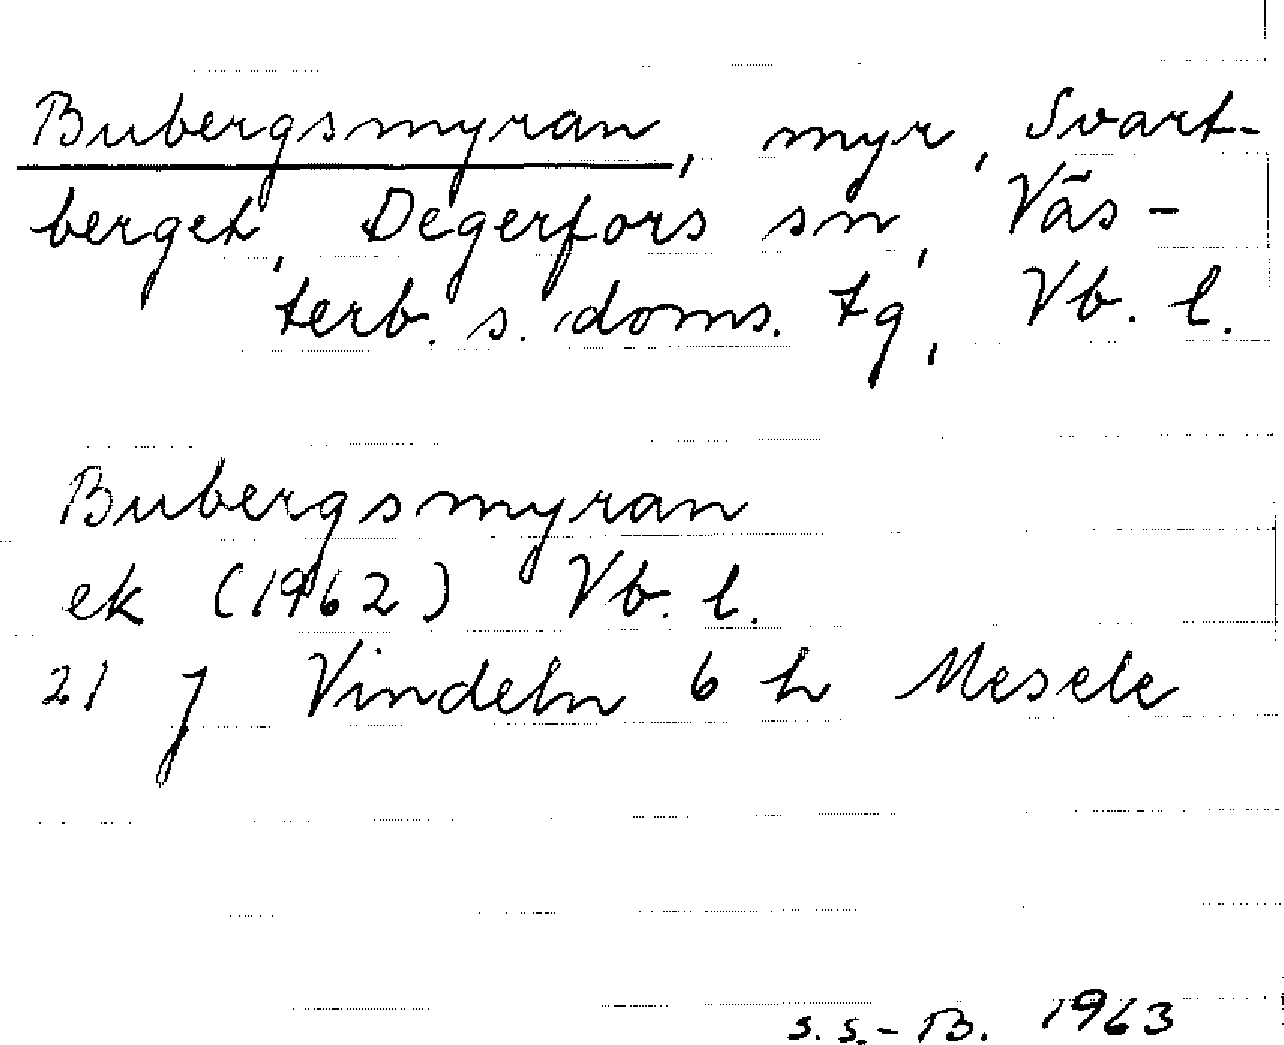 Bubergsmyran, myr, Svart-
berget, Degerfors sn, Väs-
terb. s. doms. tg, Vb. l.
Bubergsmyran
ek (1962) Vb. l.
21 J Vindeln 6 h Mesele
s. s.-B. 1963